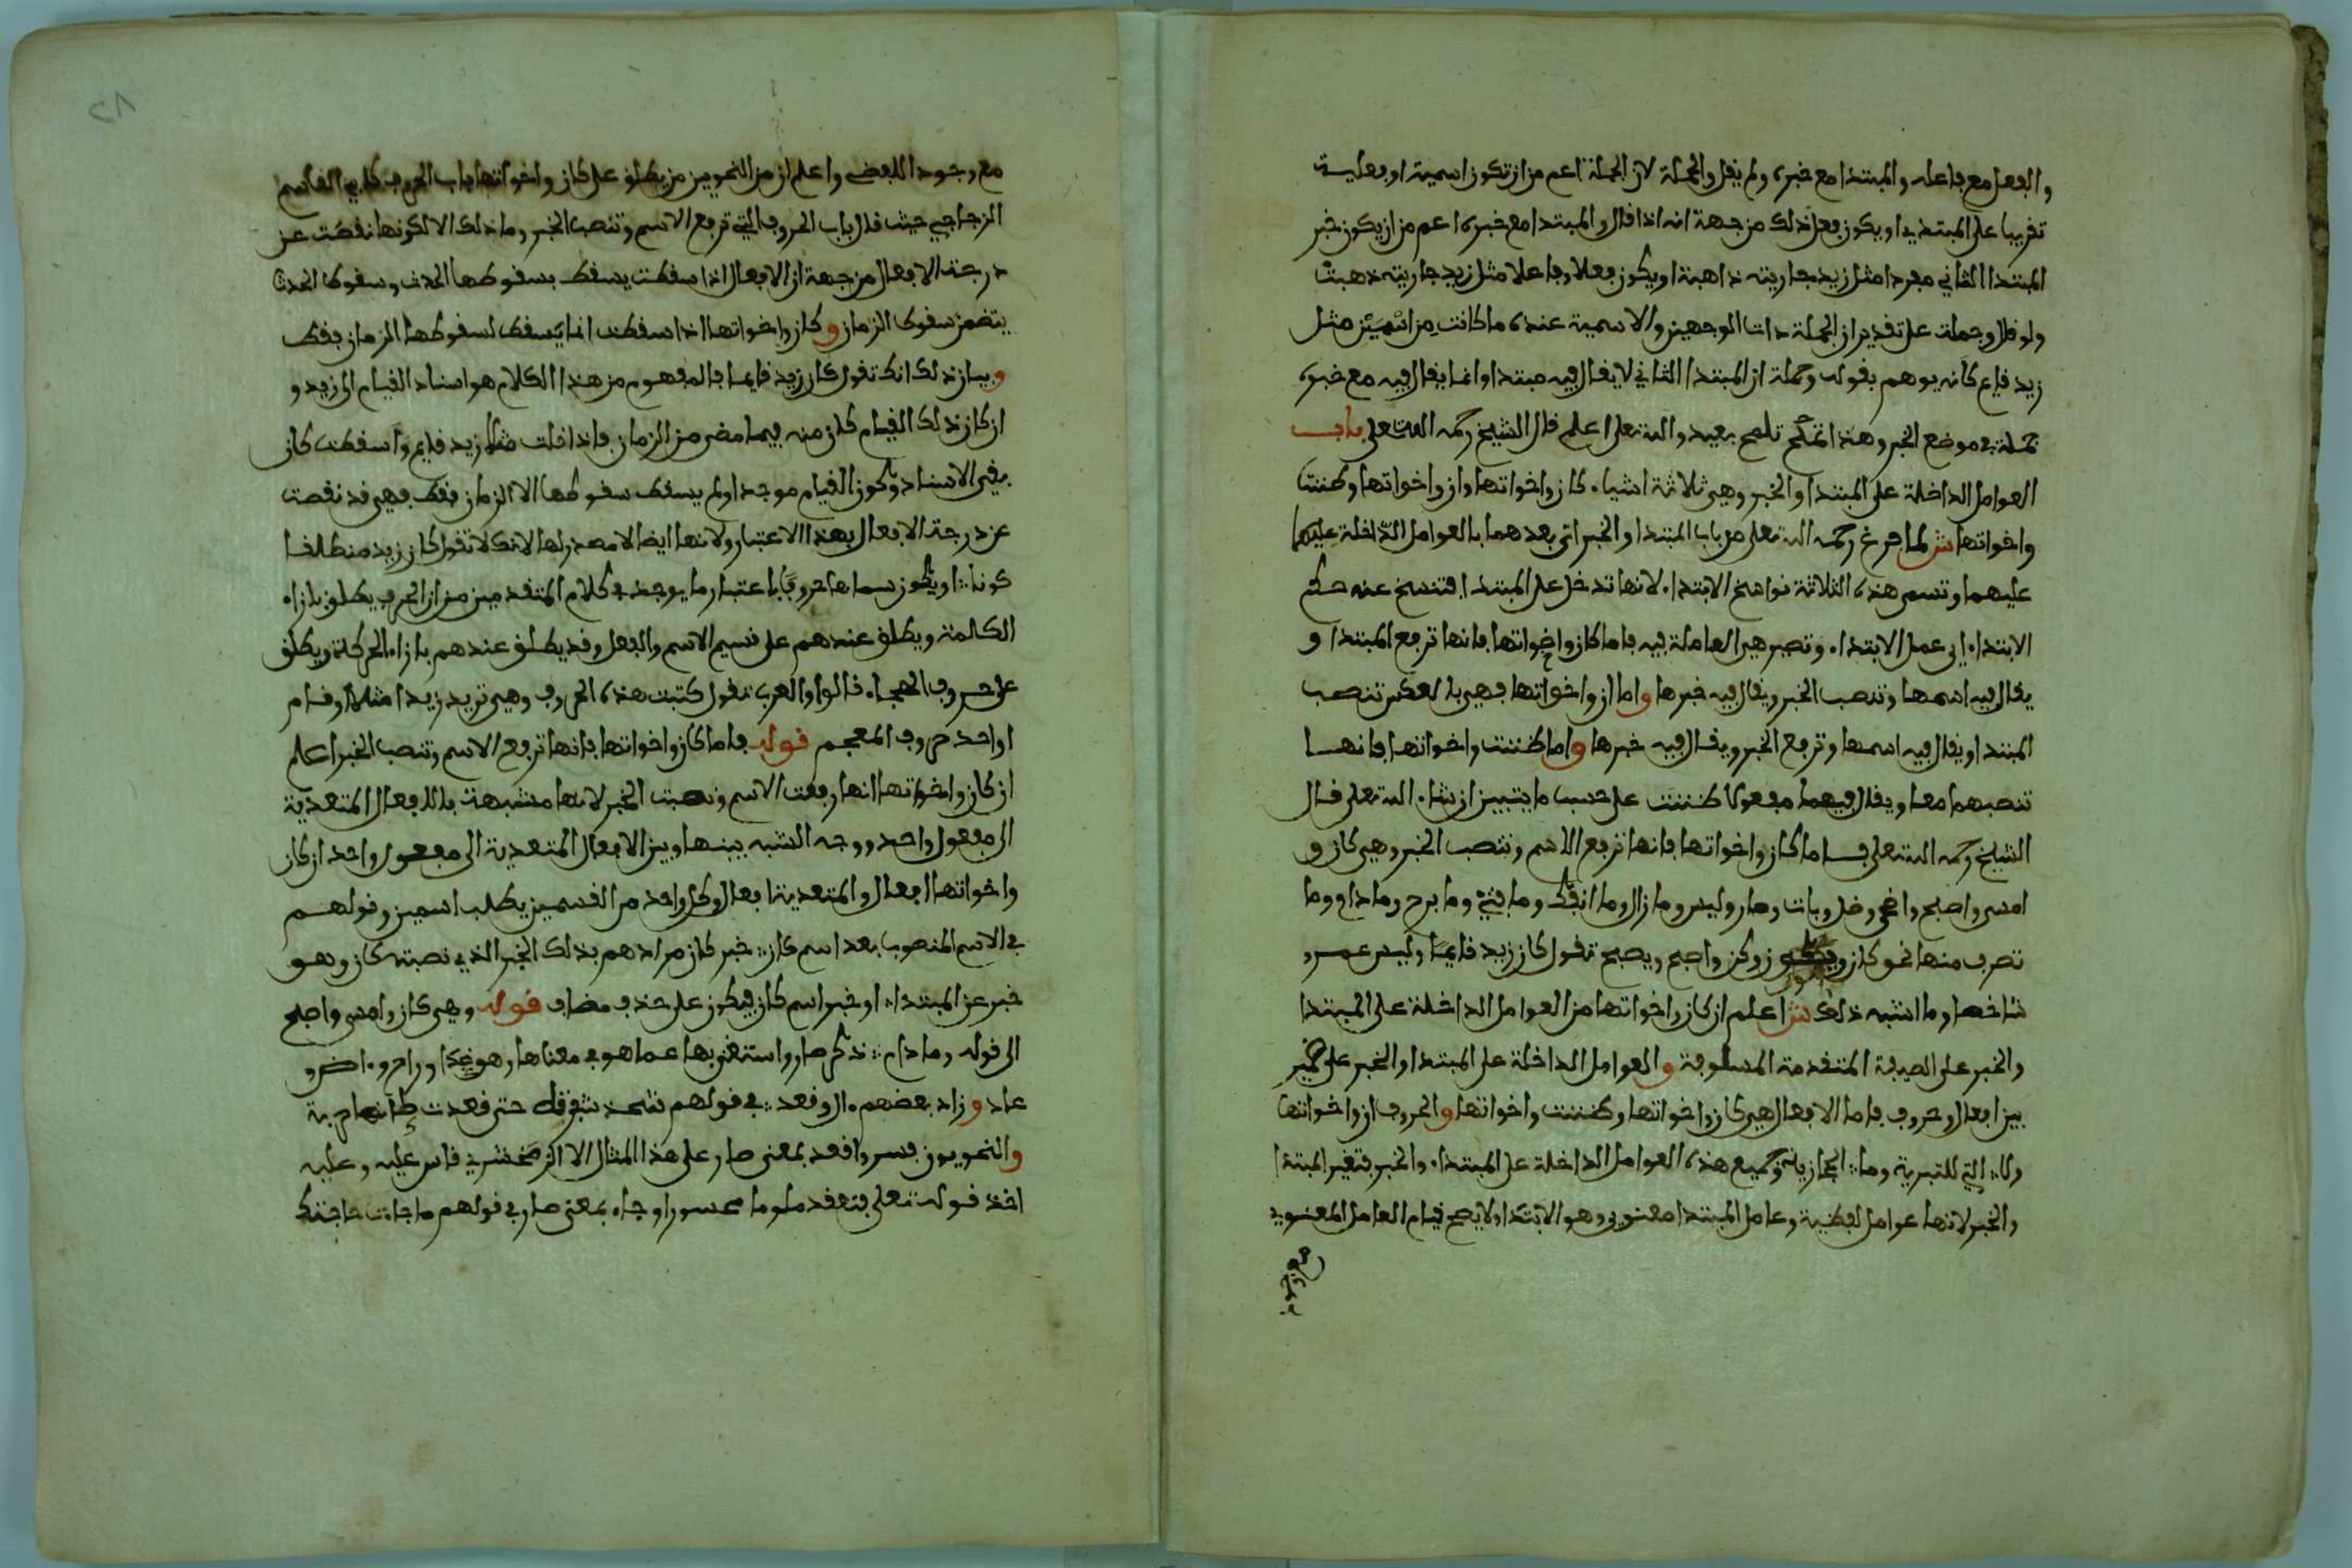 والفعل مع فاعله والمبتدا مع خبره ولم يقل والجملة لان الجملة اعم من ان تكون اسمية او فعلية
تقريبا على المبتدئ او يكون فعل ذلك من جهة انه اذا قال والمبتدا مع خبره اعم من ان يكون خبر
المبتدا الثاني مفردا مثل زيد جاريته ذاهبة او يكون فعلا وفاعلا مثل زيد جاريته ذهبت
ولو قال وجملة على تقدير ان الجملة ذات الوجهين والاسمية عنده ما كانت من اسمين مثل
زيد قايم كانه يوهم بقوله وجملة ان المبتدا الثاني لا يقال فيه مبتدا وانما يقال فيه مع خبره
جملة في موضع الخبر وهذا تلمح بعيد والله تعلى اعلم قال الشيخ رحمه الله تعلى باب
العوامل الداخلة على المبتدا والخبر وهي ثلاثة اشياء كان واخواتها وان واخواتها وظننت
واخواتها ش لما فرغ رحمه الله تعلى من باب المبتدا والخبر اتى بعدهما بالعوامل الداخلة عليهما
عليهما وتسمى هذه الثلاثة نواسخ الابتداء لانها تدخل على المبتدا فتنسخ عنه حكم
الابتداء اي عمل الابتداء وتصير هي العاملة فيه فاما كان واخواتها فانها ترفع المبتدا و
يقال فيه اسمها وتنصب الخبر ويقال فيه خبرها واما ان واخواتها فهي بالعكس تنصب
المبتدا ويقال فيه اسمها وترفع الخبر ويقال فيه خبرها واما ظننت واخواتها فانها
تنصبهما معا ويقال فيهما مفعولا ظننت على حسب ما يتبين ان شاء الله تعلى قال
الشيخ رحمه الله تعلى فاما كان واخواتها فانها ترفع الاسم وتنصب الخبر وهي كان و
امسى واصبح واضحى وظل وبات وصار وليس وما زال وما انفك وما فتئ وما برح وما دام وما
تصرف منها نحو كان ويكون وكن واصبح ويصبح تقول كان زيد قايما وليس عمرو
شاخصا وما اشبه ذلك ش اعلم ان كان واخواتها من العوامل الداخلة على المبتدا
والخبر على الصيفة المتقدمة المسلوفة والعوامل الداخلة على المبتدا والخبر على
بين افعال وحروف فاما الافعال هي كان واخواتها وظننت واخواتها والحروف ان واخواتها
ولا التي للتبرية وما الحجازية وجميع هذه العوامل الداخلة على المبتداء والخبر بتغير المبتدا
والخبر لانها عوامل لفظية وعامل المبتدا معنوي وهو الابتدا ولا يصح قيام العامل المعنوي
مع وجود
مع وجود اللفظي واعلم ان من النحويين من يطلق على كان واخواتها باب الحروف كابي القاسم
الزجاجي حيث قال باب الحروف التي ترفع الاسم وتنصب الخبر وما ذلك الا لكونها نقصت عن
درجة الافعال من جهة ان الافعال اذا سقطت يسقط بسقوطها الحدث وسقوط الحدث
يتضمن سقوط الزمان وكان واخواتها اذا سقطت انما يسقط لسقوطها الزمان فقط
وبيان ذلك انك تقول كان زيد قايما فالمفهوم من هذا الكلام هو اسناد القيام الى زيد و
ان كان ذلك القيام كان منه فيما مضى من الزمان فاذا قلت مثلا زيد قايم واسقطت كان
بقي الاسناد وكون القيام موجدا ولم يسقط سقوطها الا الزمان فقط فهي قد نقصت
عن درجة الافعال بهذا الاعتبار ولانها ايضا لا مصدر لها لانك لا تقول كان زيد منطلقا
كونا او يكون سماها حروفا باعتبار ما يوجد في كلام المتقدمين من ان الحرف يطلق بازاء
الكلمة ويطلق عندهم على قسيم الاسم والفعل وقد يطلق عندهم بازاء الحركة ويطلق
على حروف الهجاء قالوا والعرب تقول كتبت هذه الحروف وهي تريد زيدا مثلا او قام
او احد حروف المعجم قوله فاما كان واخواتها فانها ترفع الاسم وتنصب الخبر اعلم
ان كان واخواتها انها رفعت الاسم ونصبت الخبر لانها مشبهة بالافعال المتعدية
الى مفعول واحد ووجه الشبه بينها وبين الافعال المتعدية الى مفعول واحد ان كان
واخواتها افعال والمتعدية افعال وكل واحد من القسمين يطلب اسمين وقولهم
في الاسم المنصوب بعد اسم كان خبر كان مرادهم بذلك الخبر الذي نصبته كان وهو
خبر عن المبتدا او خبر اسم كان فيكون على حذف مضاف قوله وهي كان وامسى واصبح
الى قوله وما دام ذكر صار واستغنى بها عما هو في معناها وهو غدا وراح واض و
عاد وزاد بعضهم ال وقعد في قولهم شحذ شفرته حتى قعدت كانها حربة
والنحويون فسروا قعد بمعنى صار على هذا المثال الا الزمخشري قاس عليه وعليه
اخذ قوله تعلى فتقعد ملوما محسورا وجاء بمعنى صار في قولهم ما جات حاجتك